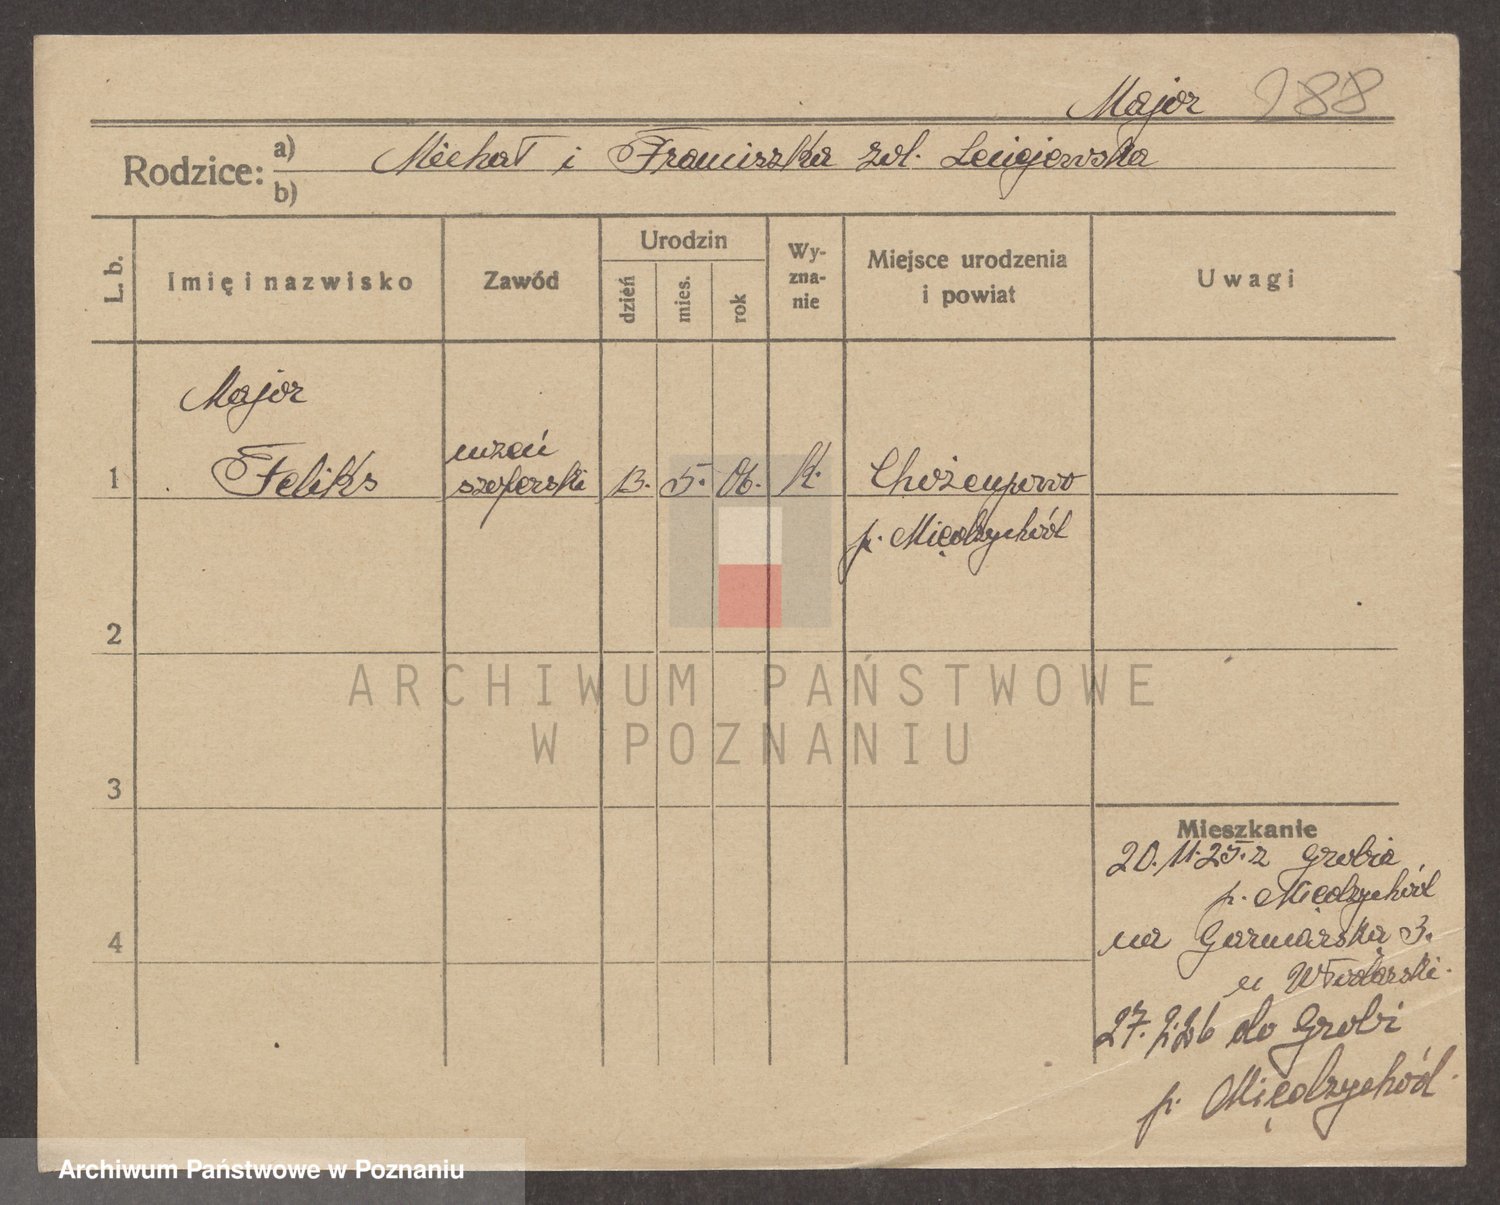 Major 988
Rodzice: a) Michał i Franciszka zd. Lengiewska
b)
L. b.
Imię i nazwisko
Zawód
Urodzin
dzień
mies.
rok
Wy-
zna-
nie
Miejsce urodzenia
i powiat
Uwagi
Major
uczeń
1 Feliks szoferski 13. 5. 06. k.
p. Międzychód
2
ARCHIWUM PAŃSTWOWE
W POZNANIU
3
Mieszkanie
20.11.25. z Grobia
p. Międzychód
4 na Garnarska 3.
u Włodarski.
27. 26 do Grobi
p. Międzychód.
Archiwum Państwowe w Poznaniu